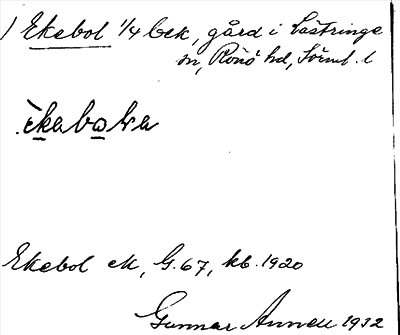 1 Ekebol 1/4 bek, gård i Lästringe
sn, Rönö hd, Sörml. l
Ekebol ek, G. 67, kb. 1920
Gunnar Annell 1932